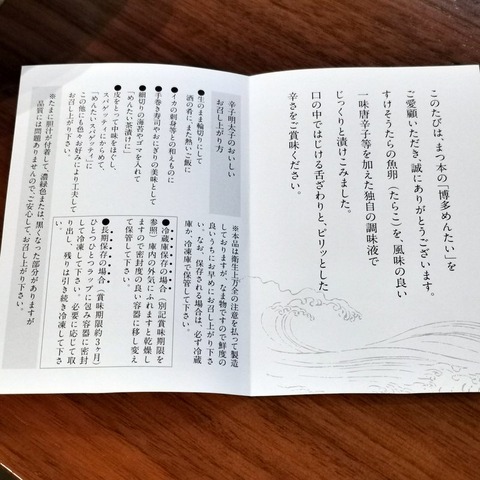 このたびは、まつ本の「博多めんたい」を
ご愛顧いただき、誠にありがとうございます。
すけそうたらの魚卵（たらこ）を、風味の良い
一味唐辛子等を加えた独自の調味液で
じっくりと漬けこみました。
口の中ではじける舌ざわりと、ピリッとした
辛さをご賞味ください。
辛子明太子のおいしい
お召し上がり方
●生のまま輪切りにして
酒の肴に、また熱いご飯に
●イカの刺身等との和えものに
●手巻き寿司やおにぎりの美味として
●細切りの海苔やゴマを入れて
「めんたい茶漬け」に
●皮をとって中味をほぐし、
スパゲッティにからめて、
「めんたいスパゲッティ」に
この他にも色々お好みにより工夫して
お召し上がり下さい。
※本品は衛生上万全の注意を払って製造
しておりますが、なま物ですので鮮度の
良いうちにお早めにお召し上がり下さ
い。なお、保存される場合は、必ず冷蔵
庫か、冷凍庫で保管して下さい。
●冷蔵保存の場合（別記賞味期限を
参照）庫内の外気にふれますと乾燥し
ますので密封度の良い容器に移し変え
て保管して下さい。
●長期保存の場合（賞味期限約3ヶ月）
ひとつひとつラップに包み容器に密封
して冷凍して下さい。必要に応じて取
り出し、残りは引き続き冷凍して下さ
い。
※たまに胆汁が付着して、濃緑色または、黒くなった部分がありますが
品質には問題ありませんので、ご安心して、お召し上がり下さい。